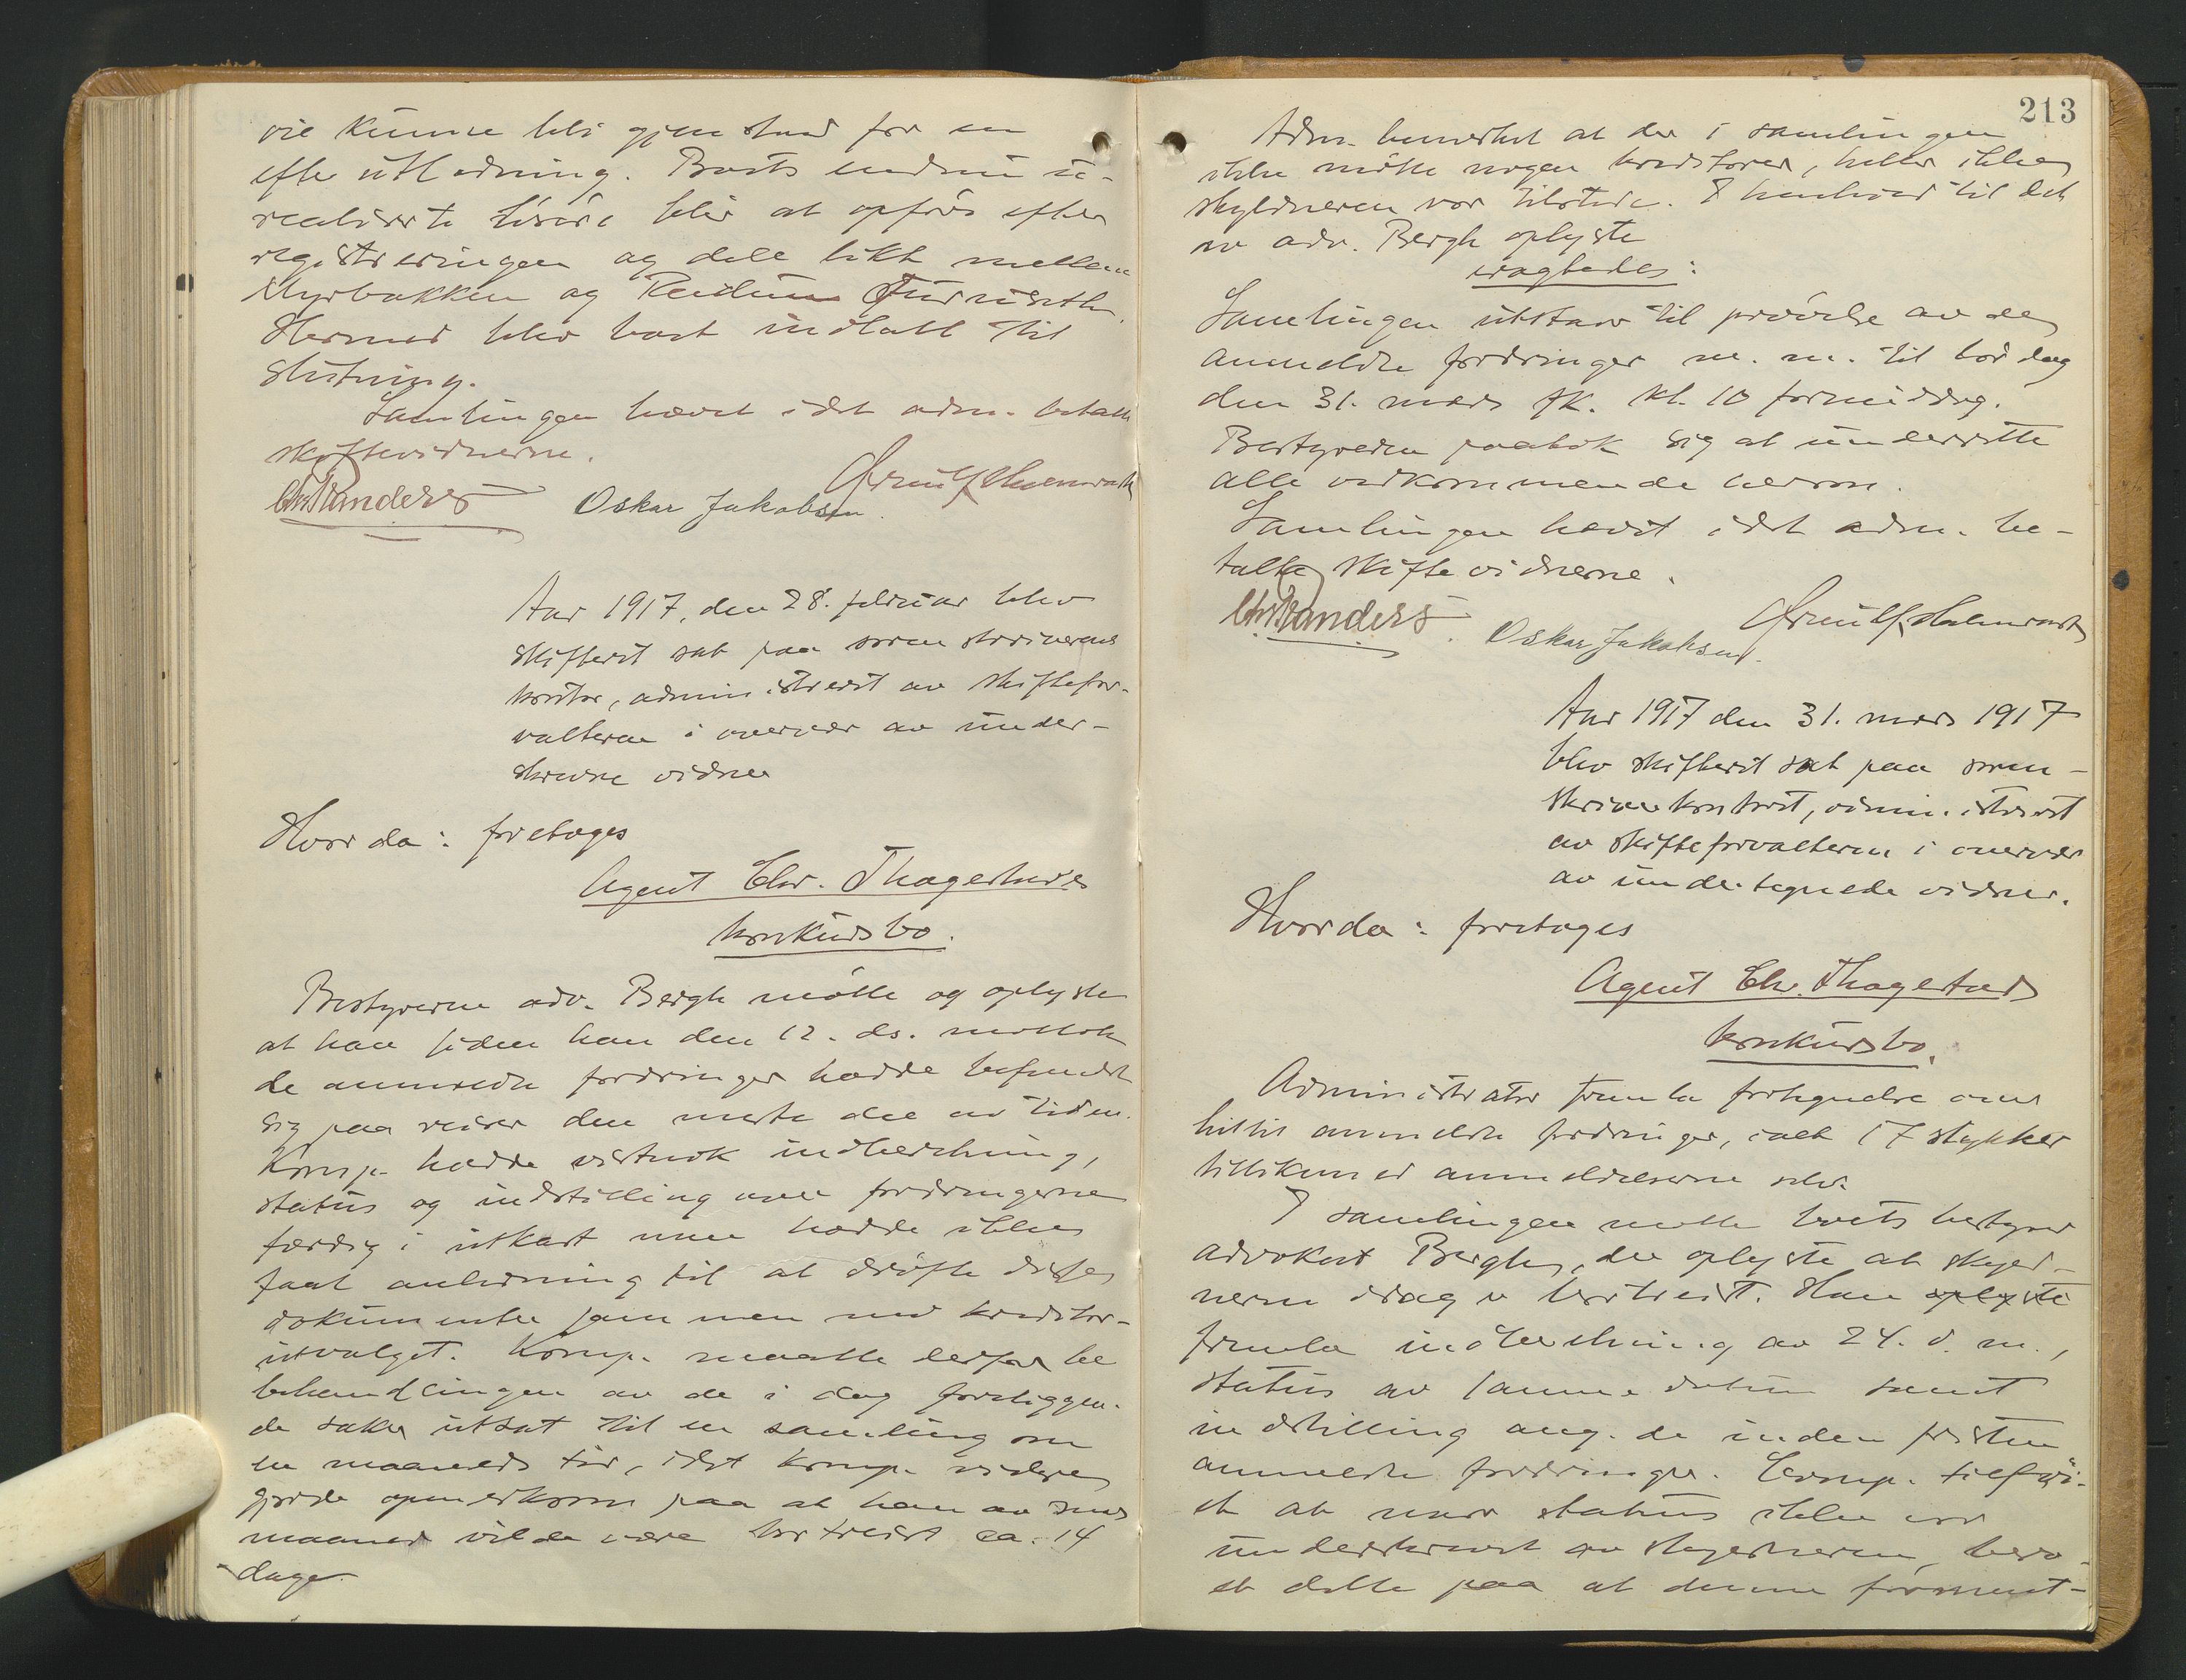 vil kunne bli gjenstand for en
efterutlodning. Boets endnu u-
realiserte løsøre blir at opføres efter
registreringen og dele likt mellem
Myrbakken og Furuseth.
Hermed blev boet indtatt til
slutning.
Samlingen hævet idet adm. betalte
skiftevidnerne.
Chr. Randers Oskar Jakobsen.
Aar 1917, den 28. februar blev
skifteret sat paa sorenskriverens
kontor, administrert av skiftefor-
valteren i overvær av under-
skrevne vidner
Hvorda: foretoges
Agent Chr. Thagestads
konkursbo.
Bestyreren adv. Bergh møtte og oplyste
at han siden han den 12. ds. mottok
de anmeldte fordringer hadde befundet
sig paa reiser den meste del av tiden.
Komp. hadde vistnok indberetning,
status og indstilling over fordringerne
færdig i utkast men hadde ikke
faat anledning til at drøfte disse
dokumenter sammen med kreditor-
utvalget. Komp. maatte derfor be
behandlingen av de i dag foreliggen-
de saker utsat til en samling om
en maaneds tid, idet komp. videre
gjorde opmerksom paa at han av
maaned vilde være bortreist ca. 14
dage.
213
Adm. bemerket at der i samlingen
ikke møtte nogen kreditorer, heller ikke
skyldneren var tilstede. I henhold til det
av adv. Bergh oplyste
eragtedes:
Samlingen utstaar til prøvelse av de
anmeldte fordringer m. m. til lørdag
den 31. mars fk. kl. 10 formiddag.
Bestyreren paatok sig at underrette
alle vedkommende herom.
Samlingen hævet idet adm. be-
talte skiftevidnerne.
Chr. Randers. Oskar Jakobsen.
Aar 1917 den 31. mars 1917
blev skifteret sat paa soren-
skriverkontoret, administrert
av skifteforvalteren i overvær
av undertegnede vidner.
Hvorda: foretoges
Agent Chr. Thagestads
konkursbo.
Administrator fremla fortegnelse over
hittil anmeldte fordringer, ialt 17 stykker
tillikemed anmeldelserne selv.
I samlingen møtte boets bestyrer
advokat Bergh, der oplyste at skyld-
neren idag er bortreist. Han oplyste
fremla indberetning av 24. d. m.,
status av samme datum samt
indstilling ang. de inden fristen
anmeldte fordringer. Comp. tilføi-
et at naar status ikke var
underskrevet av skyldneren, bero-
et dette paa at denne forment-